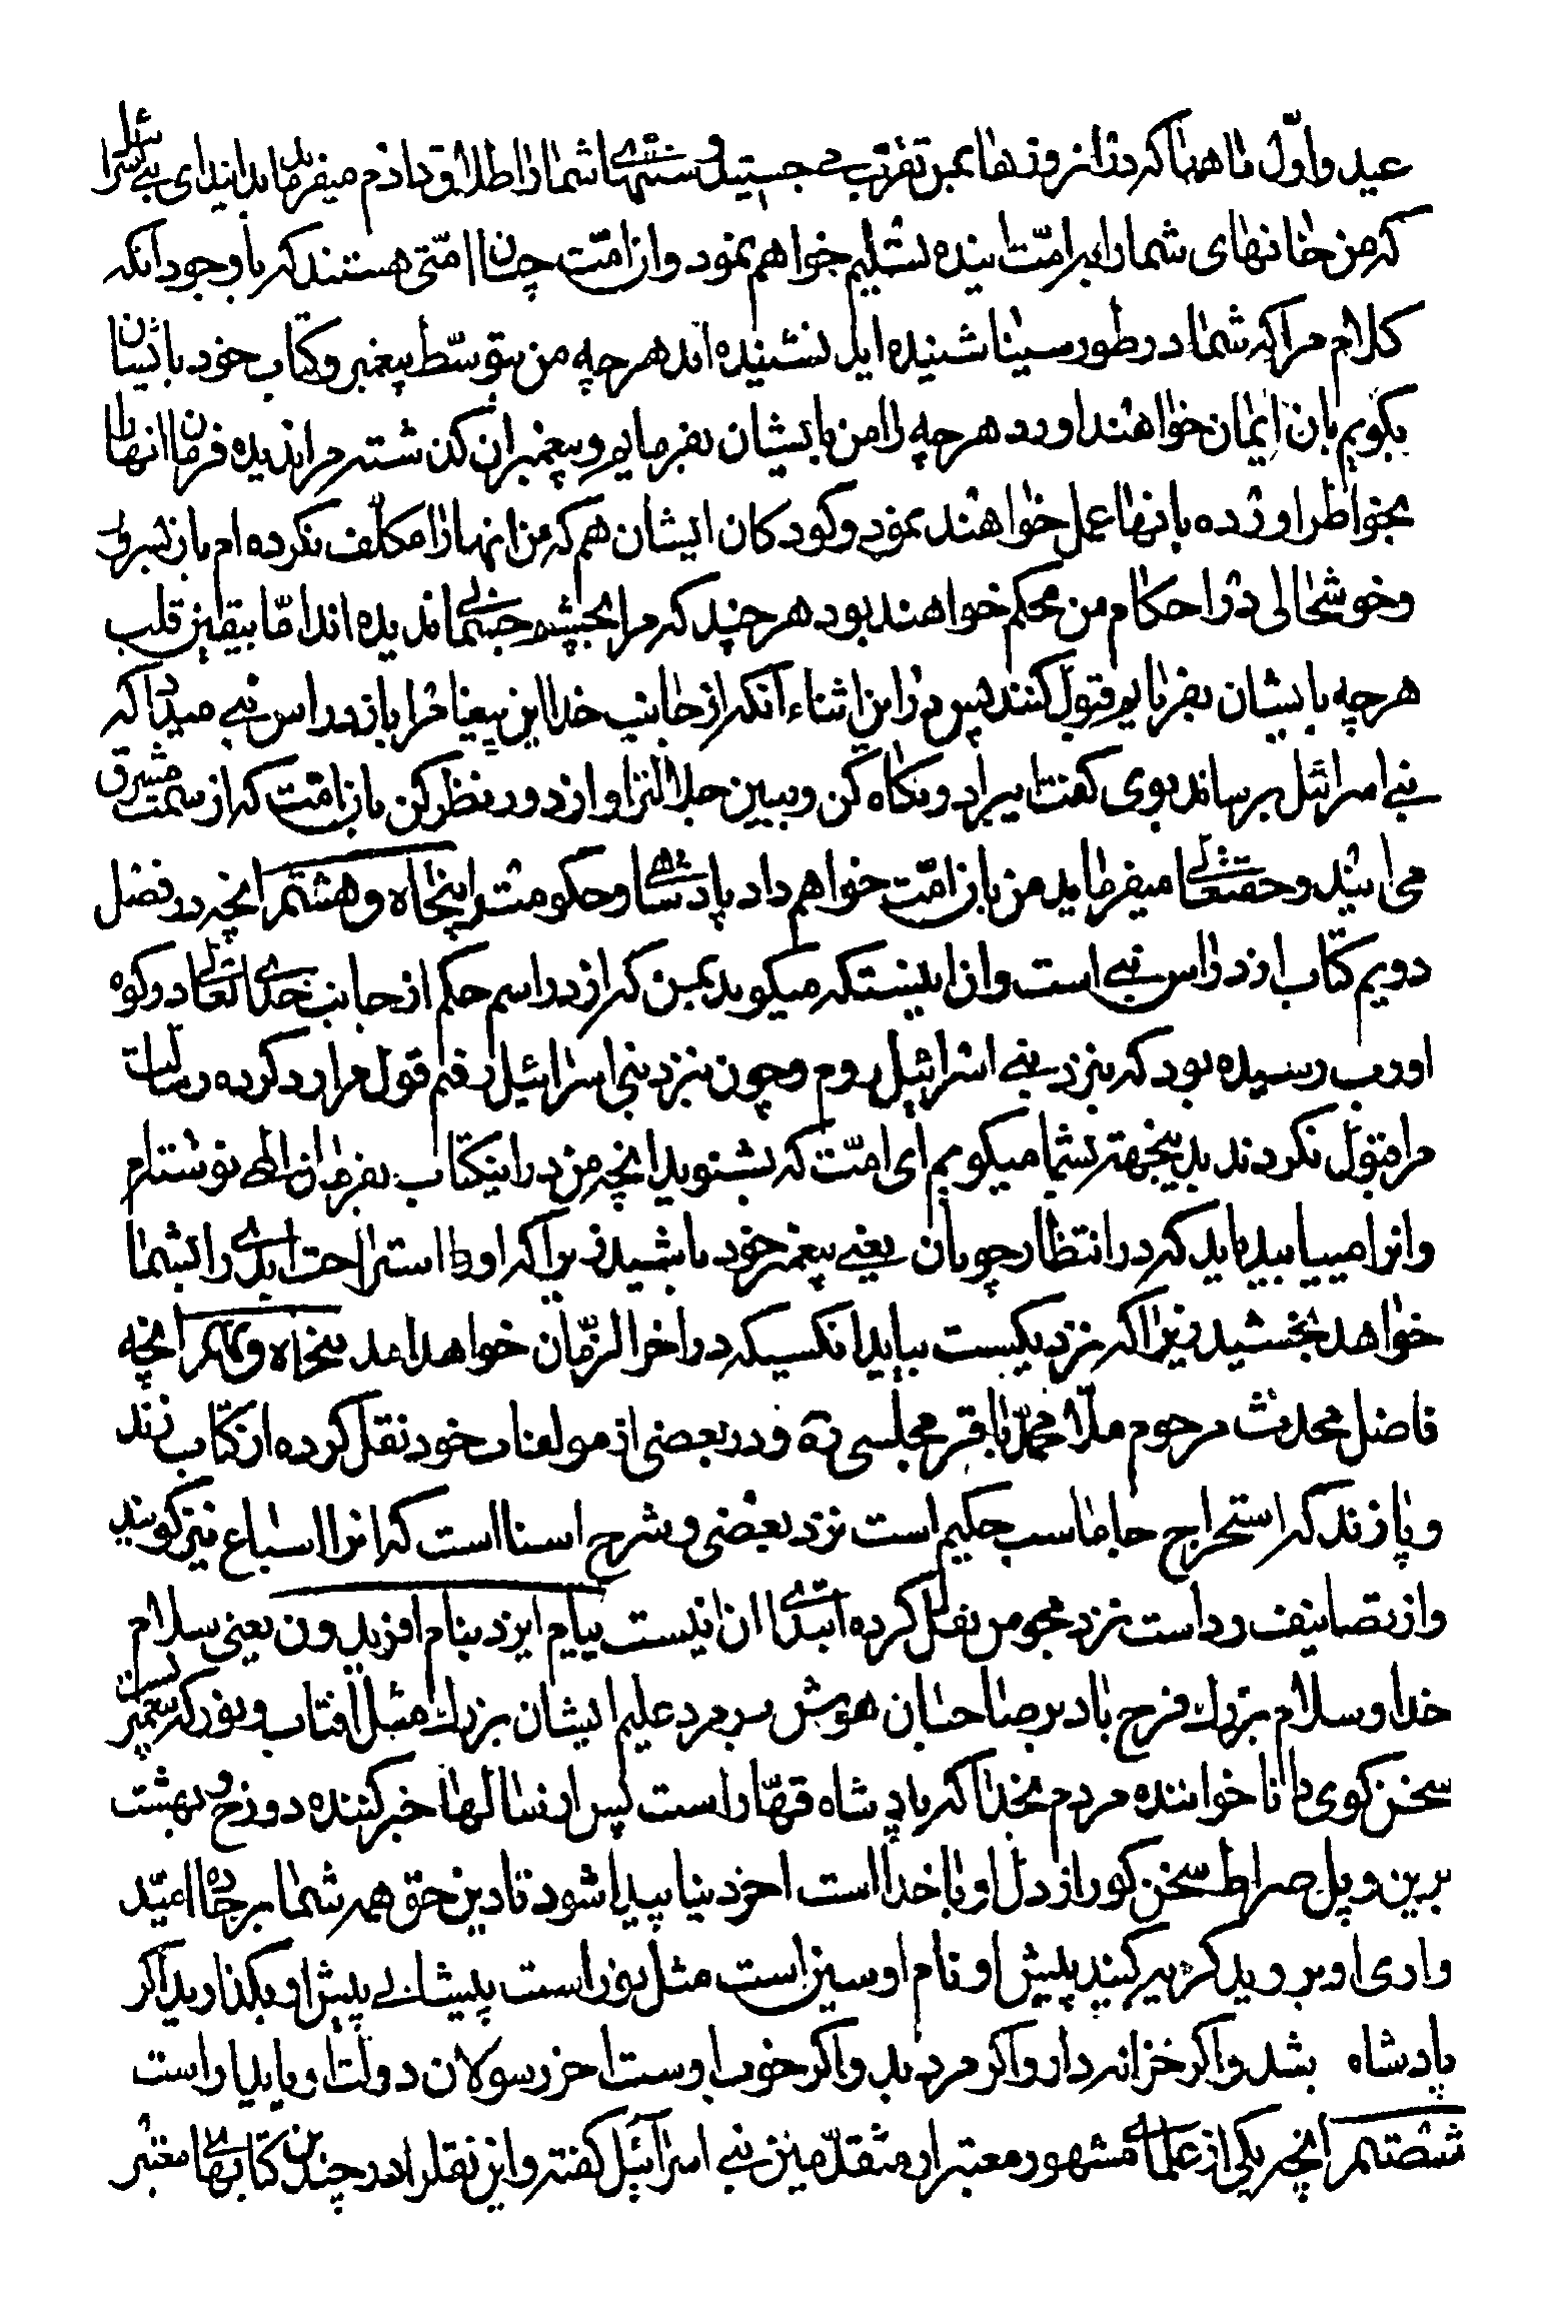 عید و اوّل ماهها که در انروزها بمن تقرّب می جستید و سنتهای شما را طلاق دادم میفرماید بدانید ای بنی اسرائیل
که من خانهای شما را بر امّت اینده تسلیم خواهم نمود و ان امّت چنان امّتی هستند که با وجود انکه
کلام مرا که شما در طور سینا شنیده اید نشنیده اند هرچه من بتوسّط پیغمبر و کتاب خود بایشان
بگویم بان ایمان خواهند اورد هرچه را من بایشان بفرمایم و پیغمبران گذشته مرا ندیده فرمان انها را
بخواطر اورده بانها عمل خواهند نمود و کودکان ایشان هم که من انها را مکلّف نکرده ام بان
و خوشحالی در احکام من محکم خواهند بود هرچند که مرا بچشم جسمانی ندیده اند امّا بیقین قلب
هرچه بایشان بفرمایم قبول کنند پس در این اثناء آنکه از جانب خدا این پیغام را باز دراس نبی میداد که
بنی اسرائیل برساند بوی گفت ای برادر نگاه کن و ببین جلالترا و از دور نظر کن بان امّت که از سمت مشرق
می ایند و حقتعالی میفرماید من بان امّت خواهم داد پادشاهی و حکومت را پنجاه و هشتم انچه در فصل
دویم کتاب ازدراس نبی است و ان اینستکه میگوید بمن که ازدراسم حکم از جانب خدای تعالی در کوه
اورب رسیده بود که بنزد بنی اسرائیل روم و چون بنزد بنی اسرائیل رفتم قول مرا رد کرده رسالت
مرا قبول نکردند بدینجهت بشما میگویم ای امّت که بشنوید انچه من در اینکتاب بفرمان الهی نوشته‌ام
و انرا میبابید باید که در انتظار چوپان یعنی پیغمبر خود باشید زیرا که او استراحت ابدی را بشما
خواهد بخشید زیرا که نزدیکست بیاید انکسیکه در اخر الزّمان خواهد امد پنجاه و نهم انچه
فاضل محدث مرحوم ملّا محمّد باقر مجلسی ره در بعضی از مولفات خود نقل کرده از کتاب زند
و پازند که استخراج جاماسب حکیم است نزد بعضی و شرح استا است که انرا استباع نیز گویند
و از تصانیف زردشت نزد مجوس نقل کرده ابتدای ان اینست بیایم ایزد بنام افریدون یعنی سلام
خدا و سلام بزرك فرح باد بر صاحبان هوش مردم علیم ایشان بزرك مثل افتاب و نور که پیغمبر
سخن گوی دانا خواننده مردم بخدا که پادشاه قهّار است پس از سالها خبر کننده دوزخ و بهشت
برین و پل صراط سخن گو راز دل او با خدا است اخر دنیا پیدا شود تا دین حق همه شما بر جاده امید
واری او بروید کنید پیش او نام او سین است مثل نور است پیشانی پیش او بگذارید اگر
پادشاه بشد و اگر خزانه دار و اگر مرد بد و اگر خوب اوست اخر رسولان دولت او پایدار است
شصتم انچه یکی از علمای مشهور معتبر از متقدّمین بنی اسرائیل گفته و این نقل را در چندین کتابهای معتبر